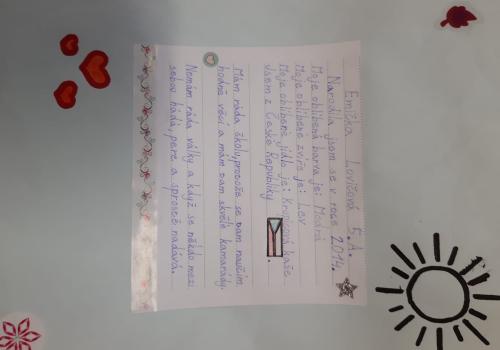 Emička Lovičová 5.A.
Narodila jsem se v roce 2014.
Moje oblíbená barva je: Modrá
Moje oblíbené zvíře je: Lev
Moje oblíbené jídlo je: Krupicová kaše.
Jsem z České Republiky.
Mám ráda školu, protože se tam naučím
hodně věcí a mám tam skvělé kamarády.
Nemám ráda války a když se někdo mezi
sebou hádá, pere a sprostě nadává.